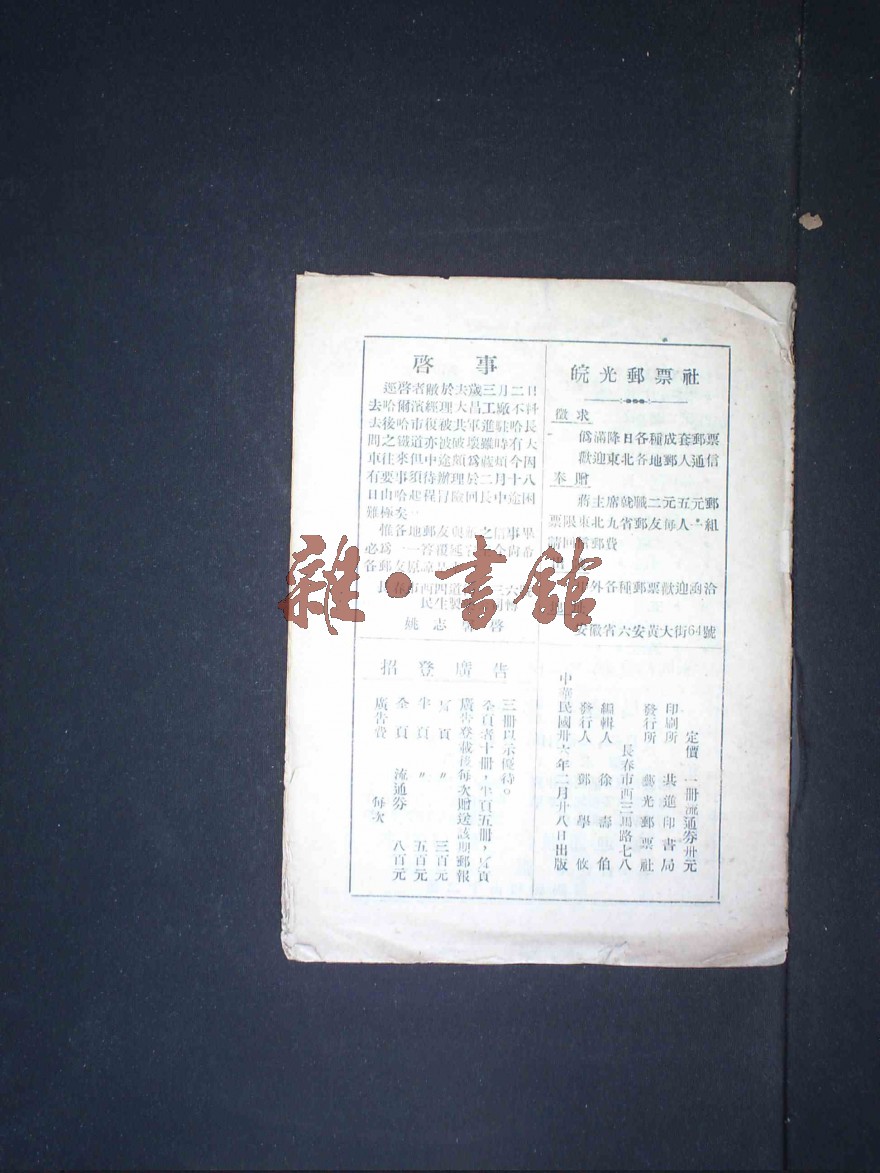 啓事
逕啓者敝於去歲三月二日
去哈爾濱經理大昌工廠不料
去後哈市復被共軍進駐哈長
間之鐵道亦被破壞雖時有大
車往來但中途頗爲麻煩今因
有要事須待辦理於二月十八
日由哈起程冒險回長中途困
難極矣
惟各地郵友與
之信事畢
必爲一一答覆
各郵友原諒
長春市西四道
民生製
姚志
啓
皖光郵票社
徵求
僞滿降日各種成套郵票
歡迎東北各地郵人通信
奉贈
蔣主席就職二元五元郵
票限東北九省郵友每人一組
請回
郵費
外各種郵票歡迎函洽
安徽省六安黃大街64號
招登廣告
廣告費 每次
全頁 流通券 八百元
半頁 〃 五百元
¼頁 〃 三百元
廣告登載後每次贈送該期郵報
全頁者十冊，半頁五冊，¼頁
三冊以示優待。
定價 一冊流通券卅元
印刷所 共進印書局
發行所 藝光郵票社
長春市西三馬路七八
編輯人 徐壽伯
發行人 鄭學攸
中華民國卅六年二月廿八日出版
雜·書館